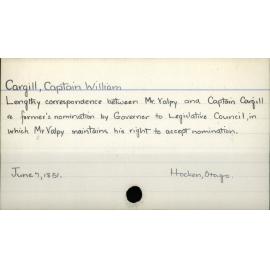 Cargill, Captain William
Lengthy correspondence between Mr. Valpy and Captain Cargill
re former's nomination by Governor to Legislative Council, in
which Mr Valpy maintains his right to accept nomination.
June 7, 1851. Hocken, Otago.